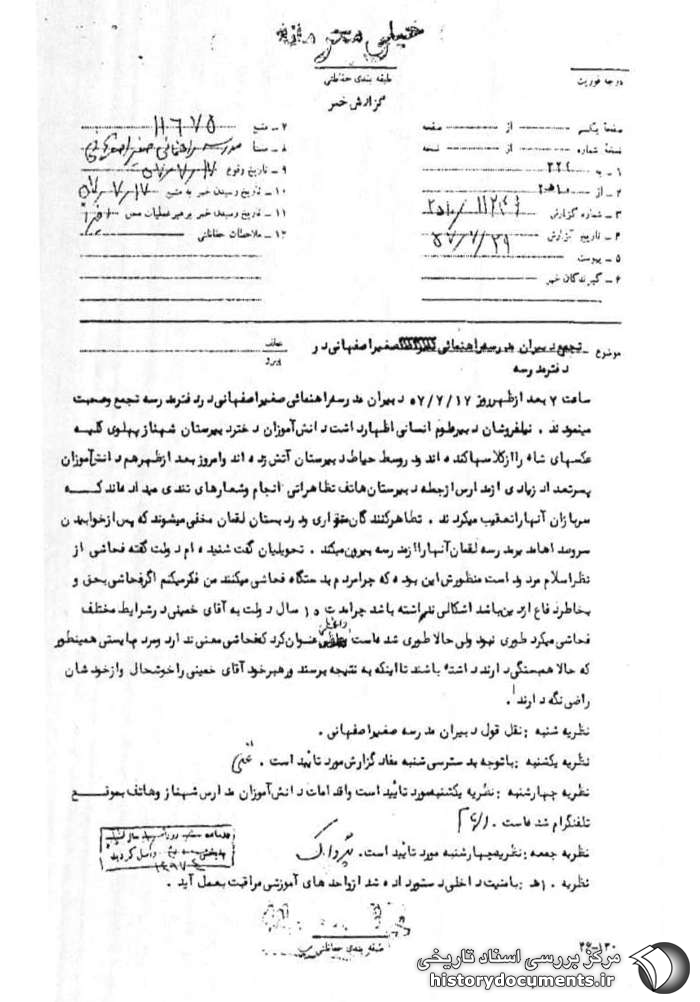 خیلی محرمانه
طبقه بندی حفاظتی
درجه فوریت
گزارش خبر
صفحهٔ یکم از صفحه
نسخهٔ شماره از نسخه
۱ ـ به ۳۲۲
۲ ـ از ۱۰ه۲
۳ ـ شماره گزارش
۴ ـ تاریخ گزارش ۵۷/۷/۲۹
۵ ـ پیوست
۶ ـ گیرندگان خبر
۷ ـ منبع ۱۱۶۷۵
۸ ـ منشأ مدرسه راهنمائی صغیر اصفهانی
۹ ـ تاریخ وقوع ۵۷-۷-۱۷
۱۰ ـ تاریخ رسیدن خبر به منبع ۵۷-۷-۱۷
۱۱ ـ تاریخ رسیدن خبر برهبر عملیات
۱۲ ـ ملاحظات حفاظتی
موضوع ـ تجمع دبیران مدرسه راهنمائی صغیر اصفهانی در
دفتر مدرسه
عطف
پیرو
ساعت ۲ بعد از ظهر روز ۵۷/۷/۱۷ دبیران مدرسه راهنمائی صغیر اصفهانی در دفتر مدرسه تجمع وصحبت
مینمودند . نیلفروشان دبیر علوم انسانی اظهار داشت دانش آموزان دختر دبیرستان شهناز پهلوی کلیه
عکسهای شاه را از کلاسها کنده اند و در وسط حیاط دبیرستان آتش زده اند و امروز بعد از ظهر هم دانش آموزان
پسر تعداد زیادی از مدارس از جمله دبیرستان هاتف تظاهراتی انجام وشعارهای تندی میداده اند کـــه
سربازان آنها را تعقیب میکردند . تظاهر کنندگان متواری و در دبستان لقمان مخفی میشوند که پس از خوابیدن
سر و صداها مدیر مدرسه لقمان آنها را از مدرسه بیرون میکند . تحویلیان گفت شنیده ام دولت گفته فحاشی از
نظر اسلام مردود است منظورش این بوده که چرا مردم بدستگاه فحاشی میکنند من فکر میکنم اگر فحاشی بحق و
بخاطر دفاع از دین باشد اشکالی نداشته باشد چرا مدت ۱۵ سال دولت به آقای خمینی در شرایط مختلف
فحاشی میکرد طوری نبود ولی حالا طوری شده است عنوان کرد که فحاشی معنی ندارد ومردم بایستی همینطور
که حالا همبستگی دارند داشته باشند تا اینکه به نتیجه برسند ورهبر خود آقای خمینی را خوشحال واز خودشان
راضی نگه دارند .
نظریه شنبه : نقل قول دبیران مدرسه صغیر اصفهانی .
نظریه یکشنبه : باتوجه بدسترسی شنبه مفاد گزارش مورد تأیید است .
نظریه چهارشنبه : نظریه یکشنبه مورد تأیید است واقدامات دانش آموزان مدارس شهناز وهاتف بموقــع
تلفنگرام شده است .
نظریه جمعه : نظریه چهارشنبه مورد تأیید است.
نظریه ۱۰ه : بامنیت داخلی دستور داده شد از واحدهای آموزشی مراقبت بعمل آید .
طبقه بندی حفاظتی
۲۶-۱۳۰
مرکز بررسی اسناد تاریخی
historydocuments.ir